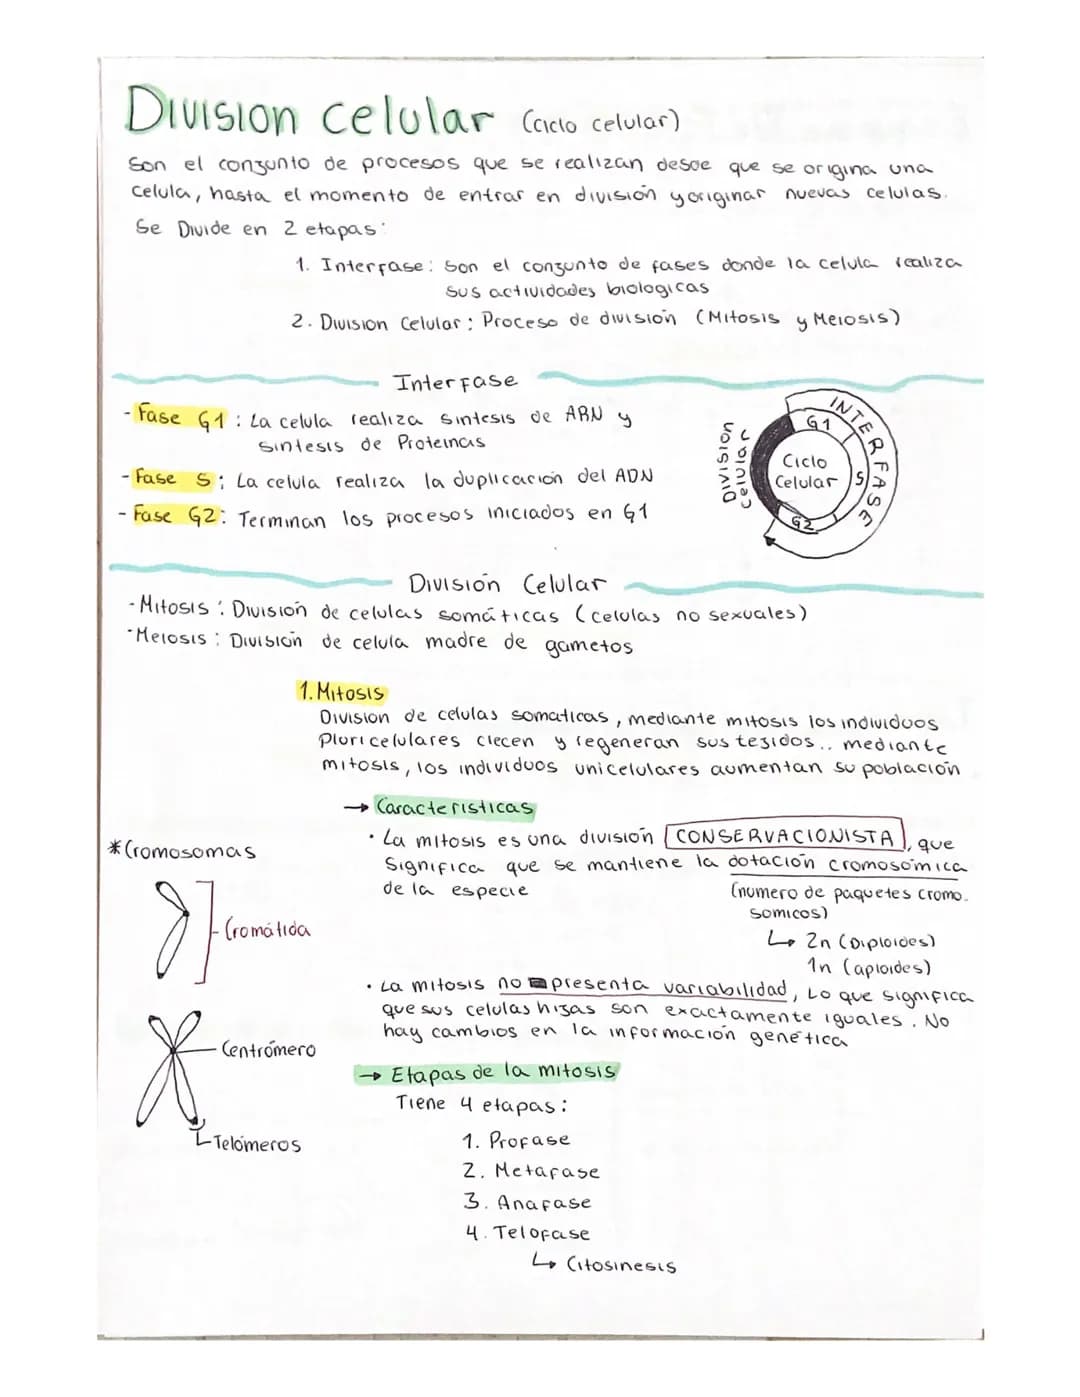 Division celular (ciclo celular)
Son el conjunto de procesos que se realizan desde que se origina una
celula, hasta el momento de entrar en división y originar nuevas celulas.
Se Divide en 2 etapas:
1. Interfase: Son el conjunto de fases donde la celula realiza
sus actividades biologicas
2. Division Celular: Proceso de división (Mitosis y Meiosis)
Interfase
- Fase G1: La celula realiza sintesis de ARN y
sintesis de Proteinas
- Fase S: La celula realiza la duplicación del ADN
- Fase G2: Terminan los procesos iniciados en G1
INTERFASE
División
Celular
G1
S
G2
Ciclo
Celular
División Celular
- Mitosis: División de celulas somáticas (celulas no sexuales)
- Meiosis: División de celula madre de gametos
1. Mitosis
Division de celulas somaticas, mediante mitosis los individuos
Pluricelulares crecen y regeneran sus tejidos.. mediante
mitosis, los individuos unicelulares aumentan su población
→ Caracteristicas
• La mitosis es una división CONSERVACIONISTA, que
Significa que se mantiene la dotación cromosómica
de la especie
(numero de paquetes cromo-
somicos)
↳ 2n (Diploides)
1n (aploides)
• La mitosis no presenta variabilidad, Lo que significa
que sus celulas hijas son exactamente iguales. No
hay cambios en la información genética
* Cromosomas
Cromátida
Centrómero
Telómeros
→ Etapas de la mitosis
Tiene 4 etapas:
1. Profase
2. Metafase
3. Anafase
4. Telofase
↳ Citosinesis